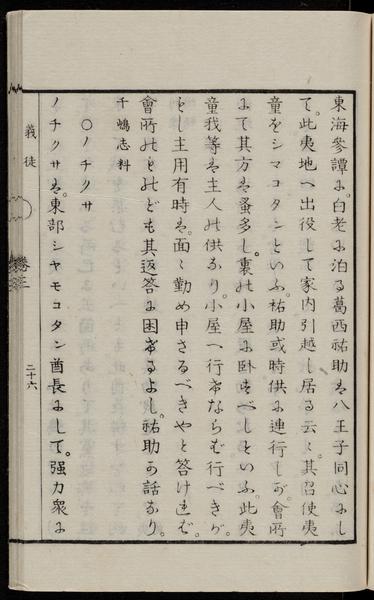 東海參譚に。白老に泊る葛西祐助は八王子同心にし
て。此夷地へ出役して家内引越し居る云々。其召使夷
童をシマコタンといふ。祐助或時供に連行しが會所
にて其方は蚤多し。裏の小屋に臥すべしといふ。此夷
童我等は主人の供なり。小屋へ行かならむ行べきが。
もし主用有時は。面々勤め申さるべきやと答ければ。
會所のものども其返答に困するよし。祐助の話なり。
千嶋志料
〇ノチクサ
ノチクサは。東部シヤモコタン酋長にして。强力衆に
義徒
卷三
二十六